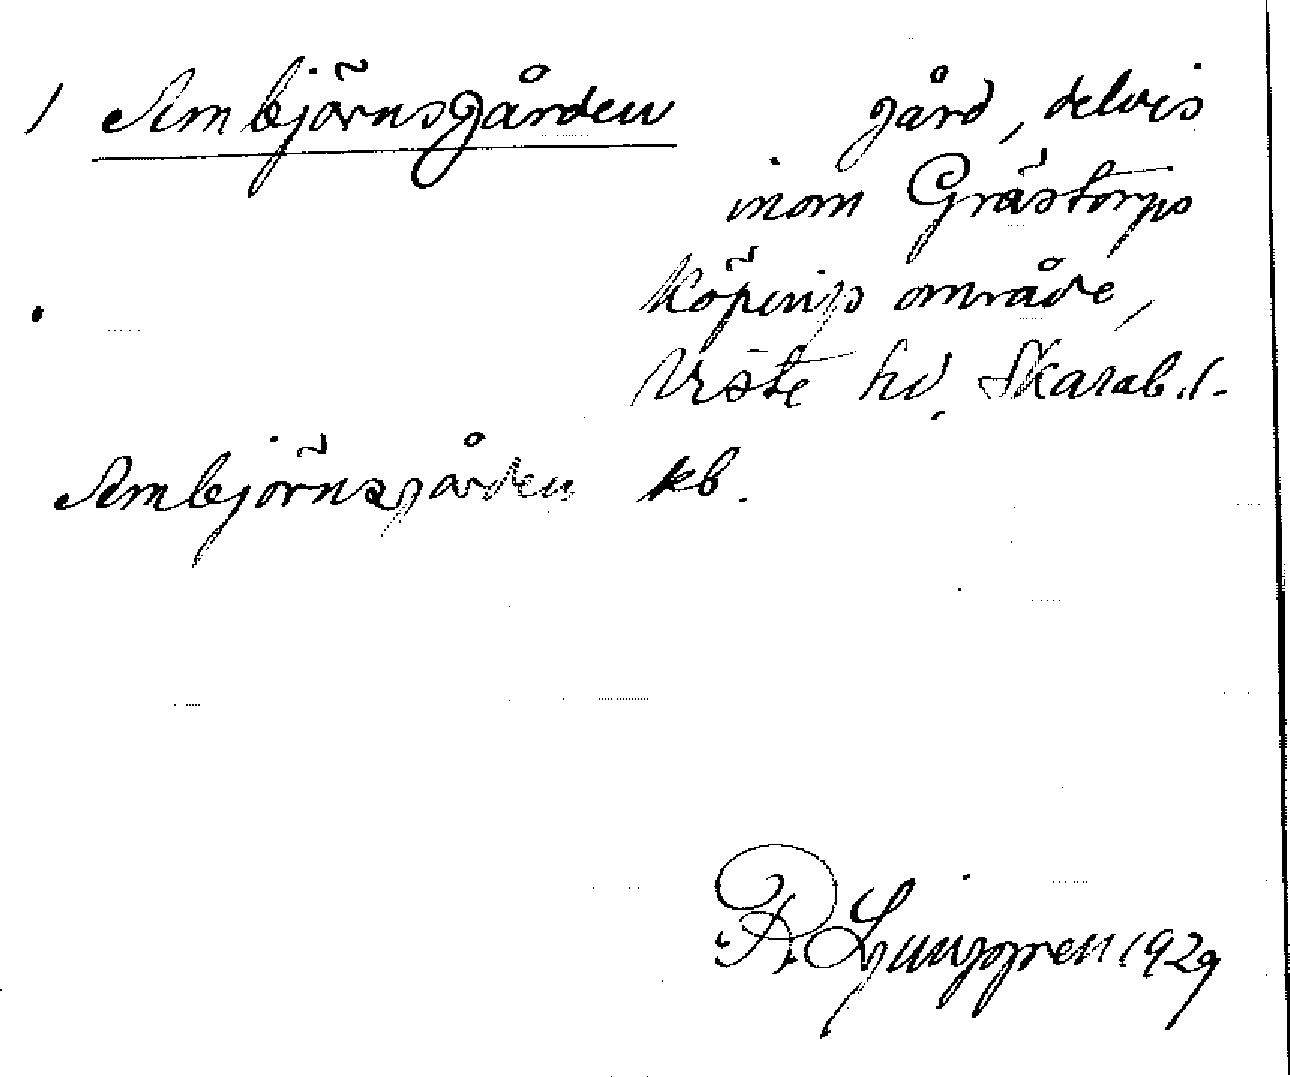 1 Ambjörnsgården gård, delvis
inom Grästorps
köpings område,
Viste hd, Skarab. l.
Ambjörnsgården kb.
R. Ljunggren 1929